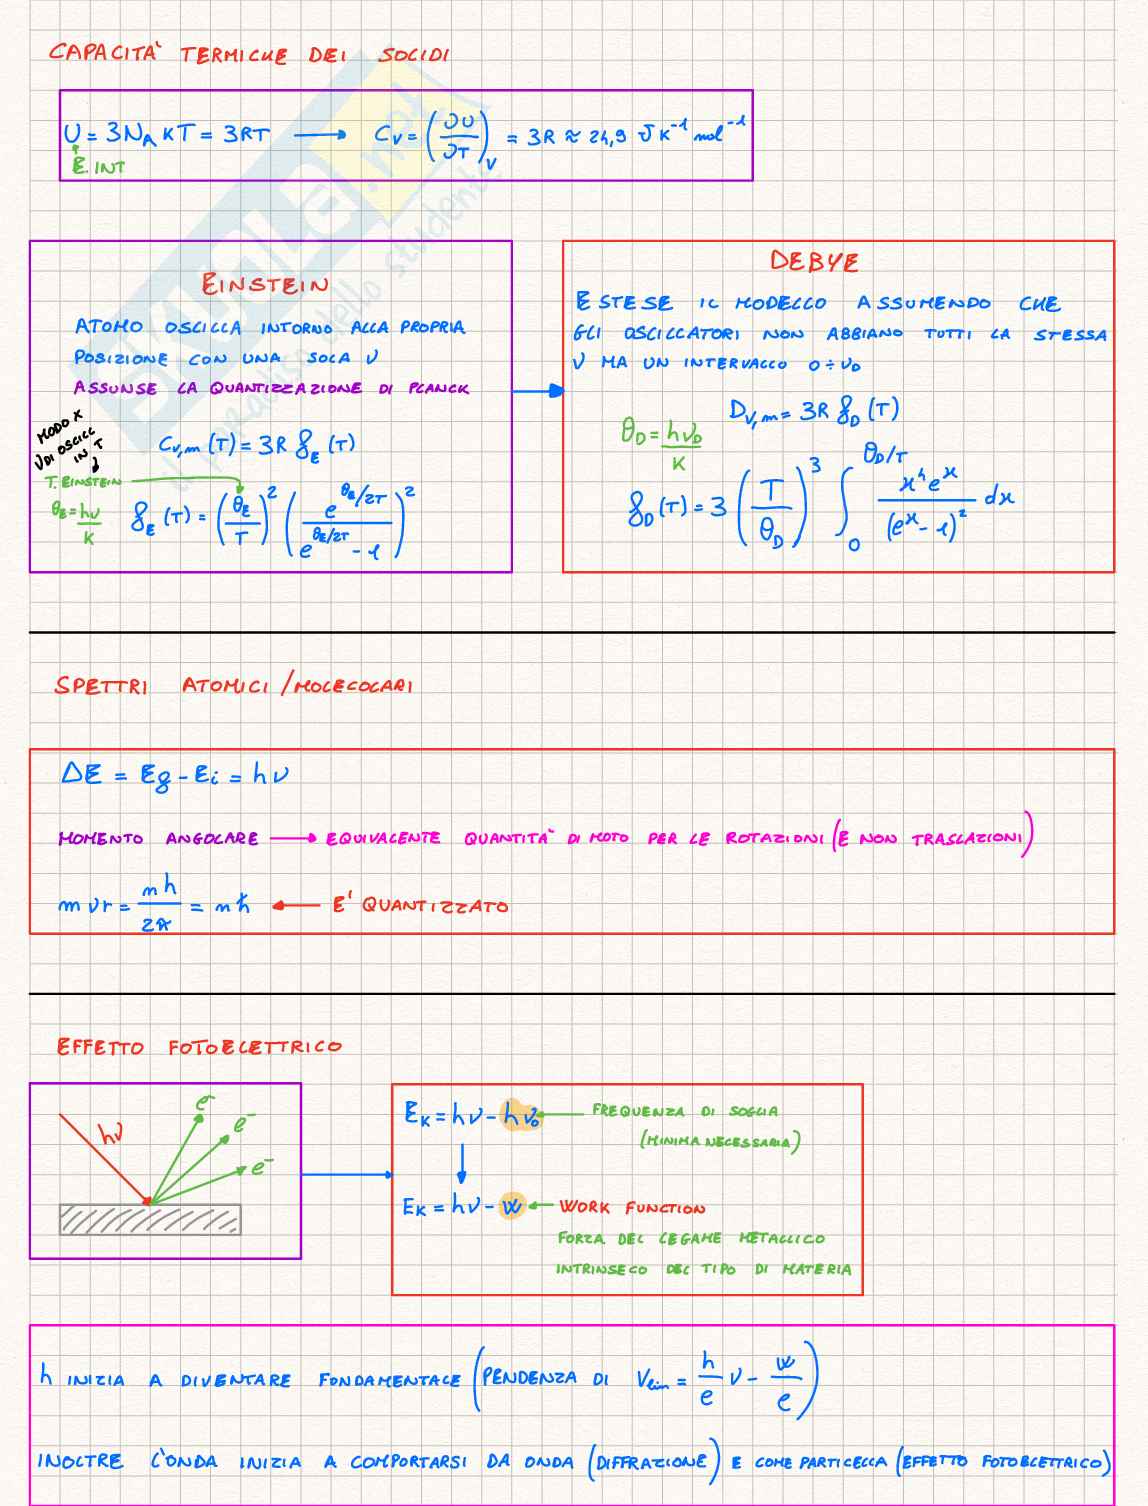 CAPACITA' TERMICHE DEI SOLIDI
U = 3NA KT = 3RT → CV = (∂U/∂T)V = 3R ≈ 24,9 J K⁻¹ mol⁻¹
E. INT
EINSTEIN
ATOMO OSCILLA INTORNO ALLA PROPRIA
POSIZIONE CON UNA SOLA ν
ASSUNSE LA QUANTIZZAZIONE DI PLANCK
MODO X
ν DI OSCILL
IN T
CV,m (T) = 3R fE (T)
T. EINSTEIN
θE = hν/K
fE (T) = (θE/T)² (e^(θE/2T) / (e^(θE/2T) - 1))²
DEBYE
ESTESE IL MODELLO ASSUMENDO CHE
GLI OSCILLATORI NON ABBIANO TUTTI LA STESSA
ν MA UN INTERVALLO 0 ÷ νD
DV,m = 3R fD (T)
θD = hνD/K
fD (T) = 3 (T/θD)³ ∫₀^(θD/T) x⁴eˣ/(eˣ - 1)² dx
SPETTRI ATOMICI / MOLECOLARI
ΔE = Ef - Ei = hν
MOMENTO ANGOLARE → EQUIVALENTE QUANTITA' DI MOTO PER LE ROTAZIONI (E NON TRASLAZIONI)
m v r = nh/2π = nħ ← E' QUANTIZZATO
EFFETTO FOTOELETTRICO
hν
e⁻
e⁻
e⁻
EK = hν - hν₀ ← FREQUENZA DI SOGLIA
(MINIMA NECESSARIA)
EK = hν - W ← WORK FUNCTION
FORZA DEL LEGAME METALLICO
INTRINSECO DEL TIPO DI MATERIA
h INIZIA A DIVENTARE FONDAMENTALE (PENDENZA DI Vlim = h/e ν - W/e)
INOLTRE L'ONDA INIZIA A COMPORTARSI DA ONDA (DIFFRAZIONE) E COME PARTICELLA (EFFETTO FOTOELETTRICO)